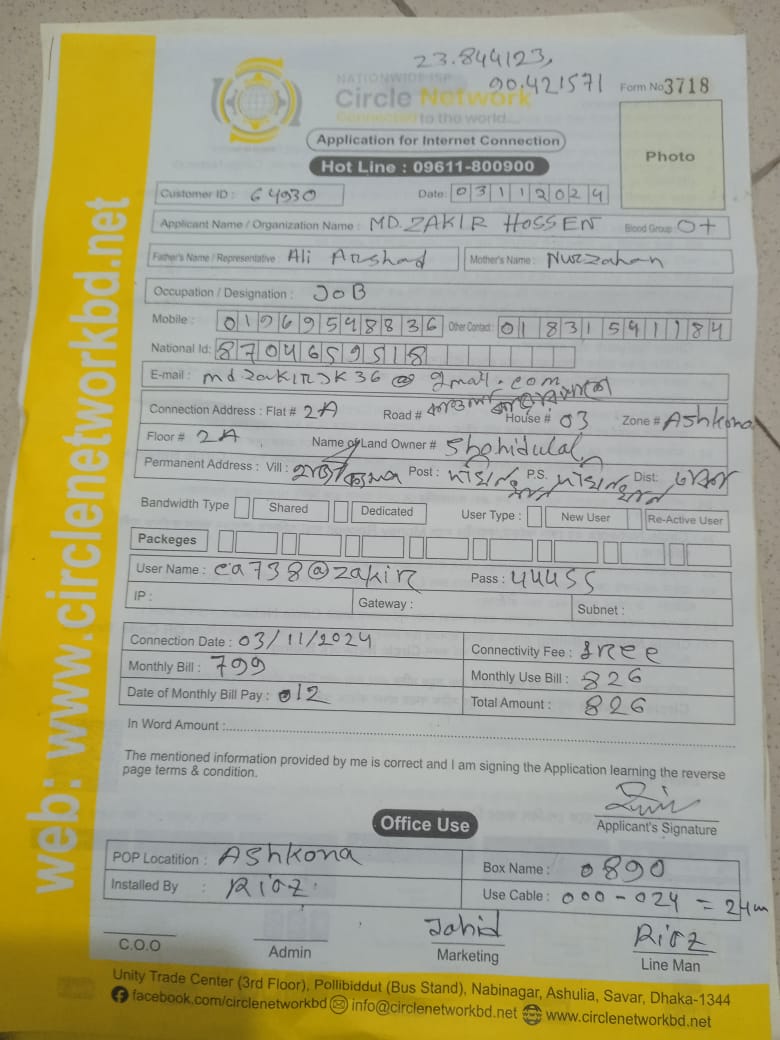 23.844123,
90.421571
NATIONWIDE ISP
Form No 3718
Circle Network
Connected to the world...
Application for Internet Connection
Photo
Hot Line : 09611-800900
Customer ID : 64930 Date: 03112024
Applicant Name / Organization Name : MD. ZAKIR HOSSEN Blood Group O+
Father's Name / Representative : Ali Arshad Mother's Name : Nurzahan
Occupation / Designation : JOB
Mobile : 01969598836 Other Contact : 01831591184
National Id: 8704659518
E-mail : mdzakirjk36@gmail.com
Connection Address : Flat # 2A Road # House # 03 Zone # Ashkona
Floor # 2A Name of Land Owner # Shohidulal
Permanent Address : Vill : Post : P.S. Dist:
Bandwidth Type Shared Dedicated User Type : New User Re-Active User
Packeges
User Name : ca738@zakir Pass : 44455
IP : Gateway : Subnet :
Connection Date : 03/11/2024 Connectivity Fee : free
Monthly Bill : 799 Monthly Use Bill : 826
Date of Monthly Bill Pay : 012 Total Amount : 826
In Word Amount :
The mentioned information provided by me is correct and I am signing the Application learning the reverse
page terms & condition.
Applicant's Signature
Office Use
POP Locatition : Ashkona Box Name : 0890
Installed By : Riaz Use Cable : 000 - 024 = 24m
Jahid Riaz
C.O.O Admin Marketing Line Man
Unity Trade Center (3rd Floor), Pollibiddut (Bus Stand), Nabinagar, Ashulia, Savar, Dhaka-1344
facebook.com/circlenetworkbd info@circlenetworkbd.net www.circlenetworkbd.net
web: www.circlenetworkbd.net